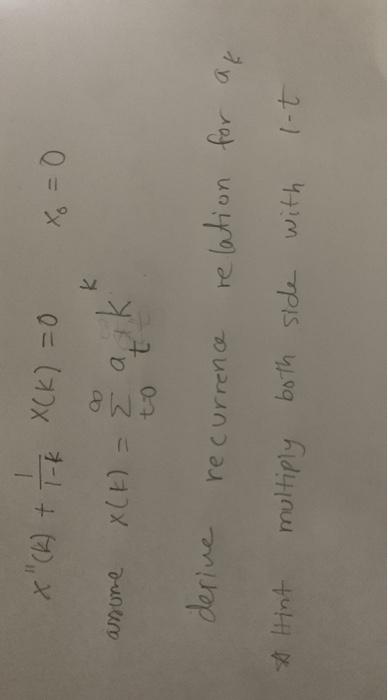 x''(k) + 1/(1-k) x(k) = 0 x₀ = 0
assume x(k) = ∞ Σ t=0 a_t k^k
derive recurrence relation for a_k
* Hint multiply both side with 1-t